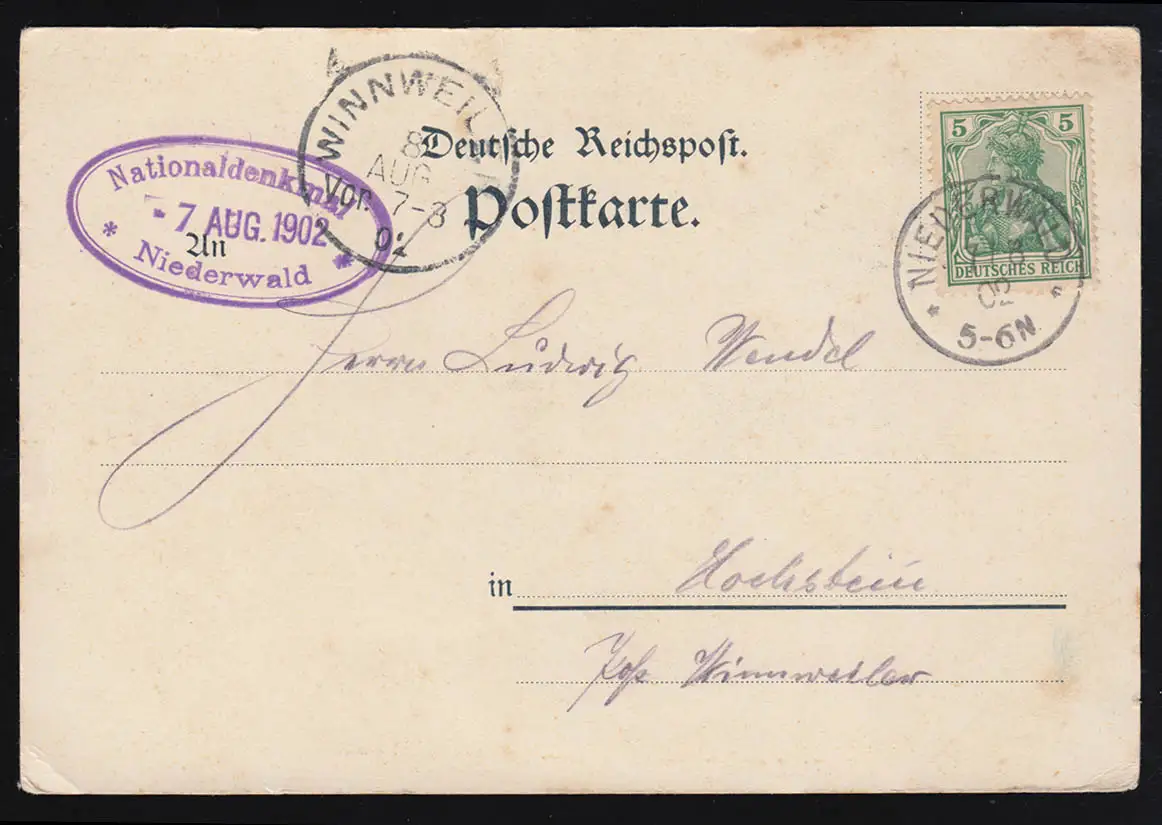 WINNWEIL
8
AUG
Vor. 7-8
02
Nationaldenkmal
- 7 AUG. 1902
Niederwald
Deutsche Reichspost.
Postkarte.
5 5
DEUTSCHES REICH
NIEDERWALD
02
5-6N
An
Herrn Ludwig Wendel
in Hochstein
Post Winnweiler